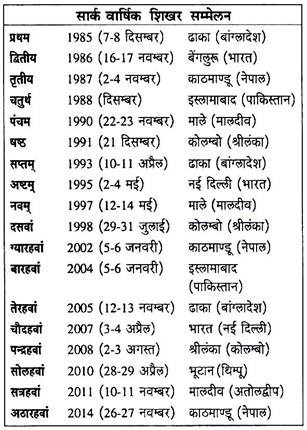 सार्क वार्षिक शिखर सम्मेलन
प्रथम 1985 (7-8 दिसम्बर) ढाका (बांग्लादेश)
द्वितीय 1986 (16-17 नवम्बर) बेंगलुरू (भारत)
तृतीय 1987 (2-4 नवम्बर) काठमाण्डू (नेपाल)
चतुर्थ 1988 (दिसम्बर) इस्लामाबाद (पाकिस्तान)
पंचम 1990 (22-23 नवम्बर) माले (मालदीव)
षष्ठ 1991 (21 दिसम्बर) कोलम्बो (श्रीलंका)
सप्तम् 1993 (10-11 अप्रैल) ढाका (बांग्लादेश)
अष्टम् 1995 (2-4 मई) नई दिल्ली (भारत)
नवम् 1997 (12-14 मई) माले (मालदीव)
दसवां 1998 (29-31 जुलाई) कोलम्बो (श्रीलंका)
ग्यारहवां 2002 (5-6 जनवरी) काठमाण्डू (नेपाल)
बारहवां 2004 (5-6 जनवरी) इस्लामाबाद
(पाकिस्तान)
तेरहवां 2005 (12-13 नवम्बर) ढाका (बांग्लादेश)
चौदहवां 2007 (3-4 अप्रैल) भारत (नई दिल्ली)
पन्द्रहवां 2008 (2-3 अगस्त) श्रीलंका (कोलम्बो)
सोलहवां 2010 (28-29 अप्रैल) भूटान (थिम्पू)
सत्रहवां 2011 (10-11 नवम्बर) मालदीव (अतोलद्वीप)
अठारहवां 2014 (26-27 नवम्बर) काठमाण्डू (नेपाल)